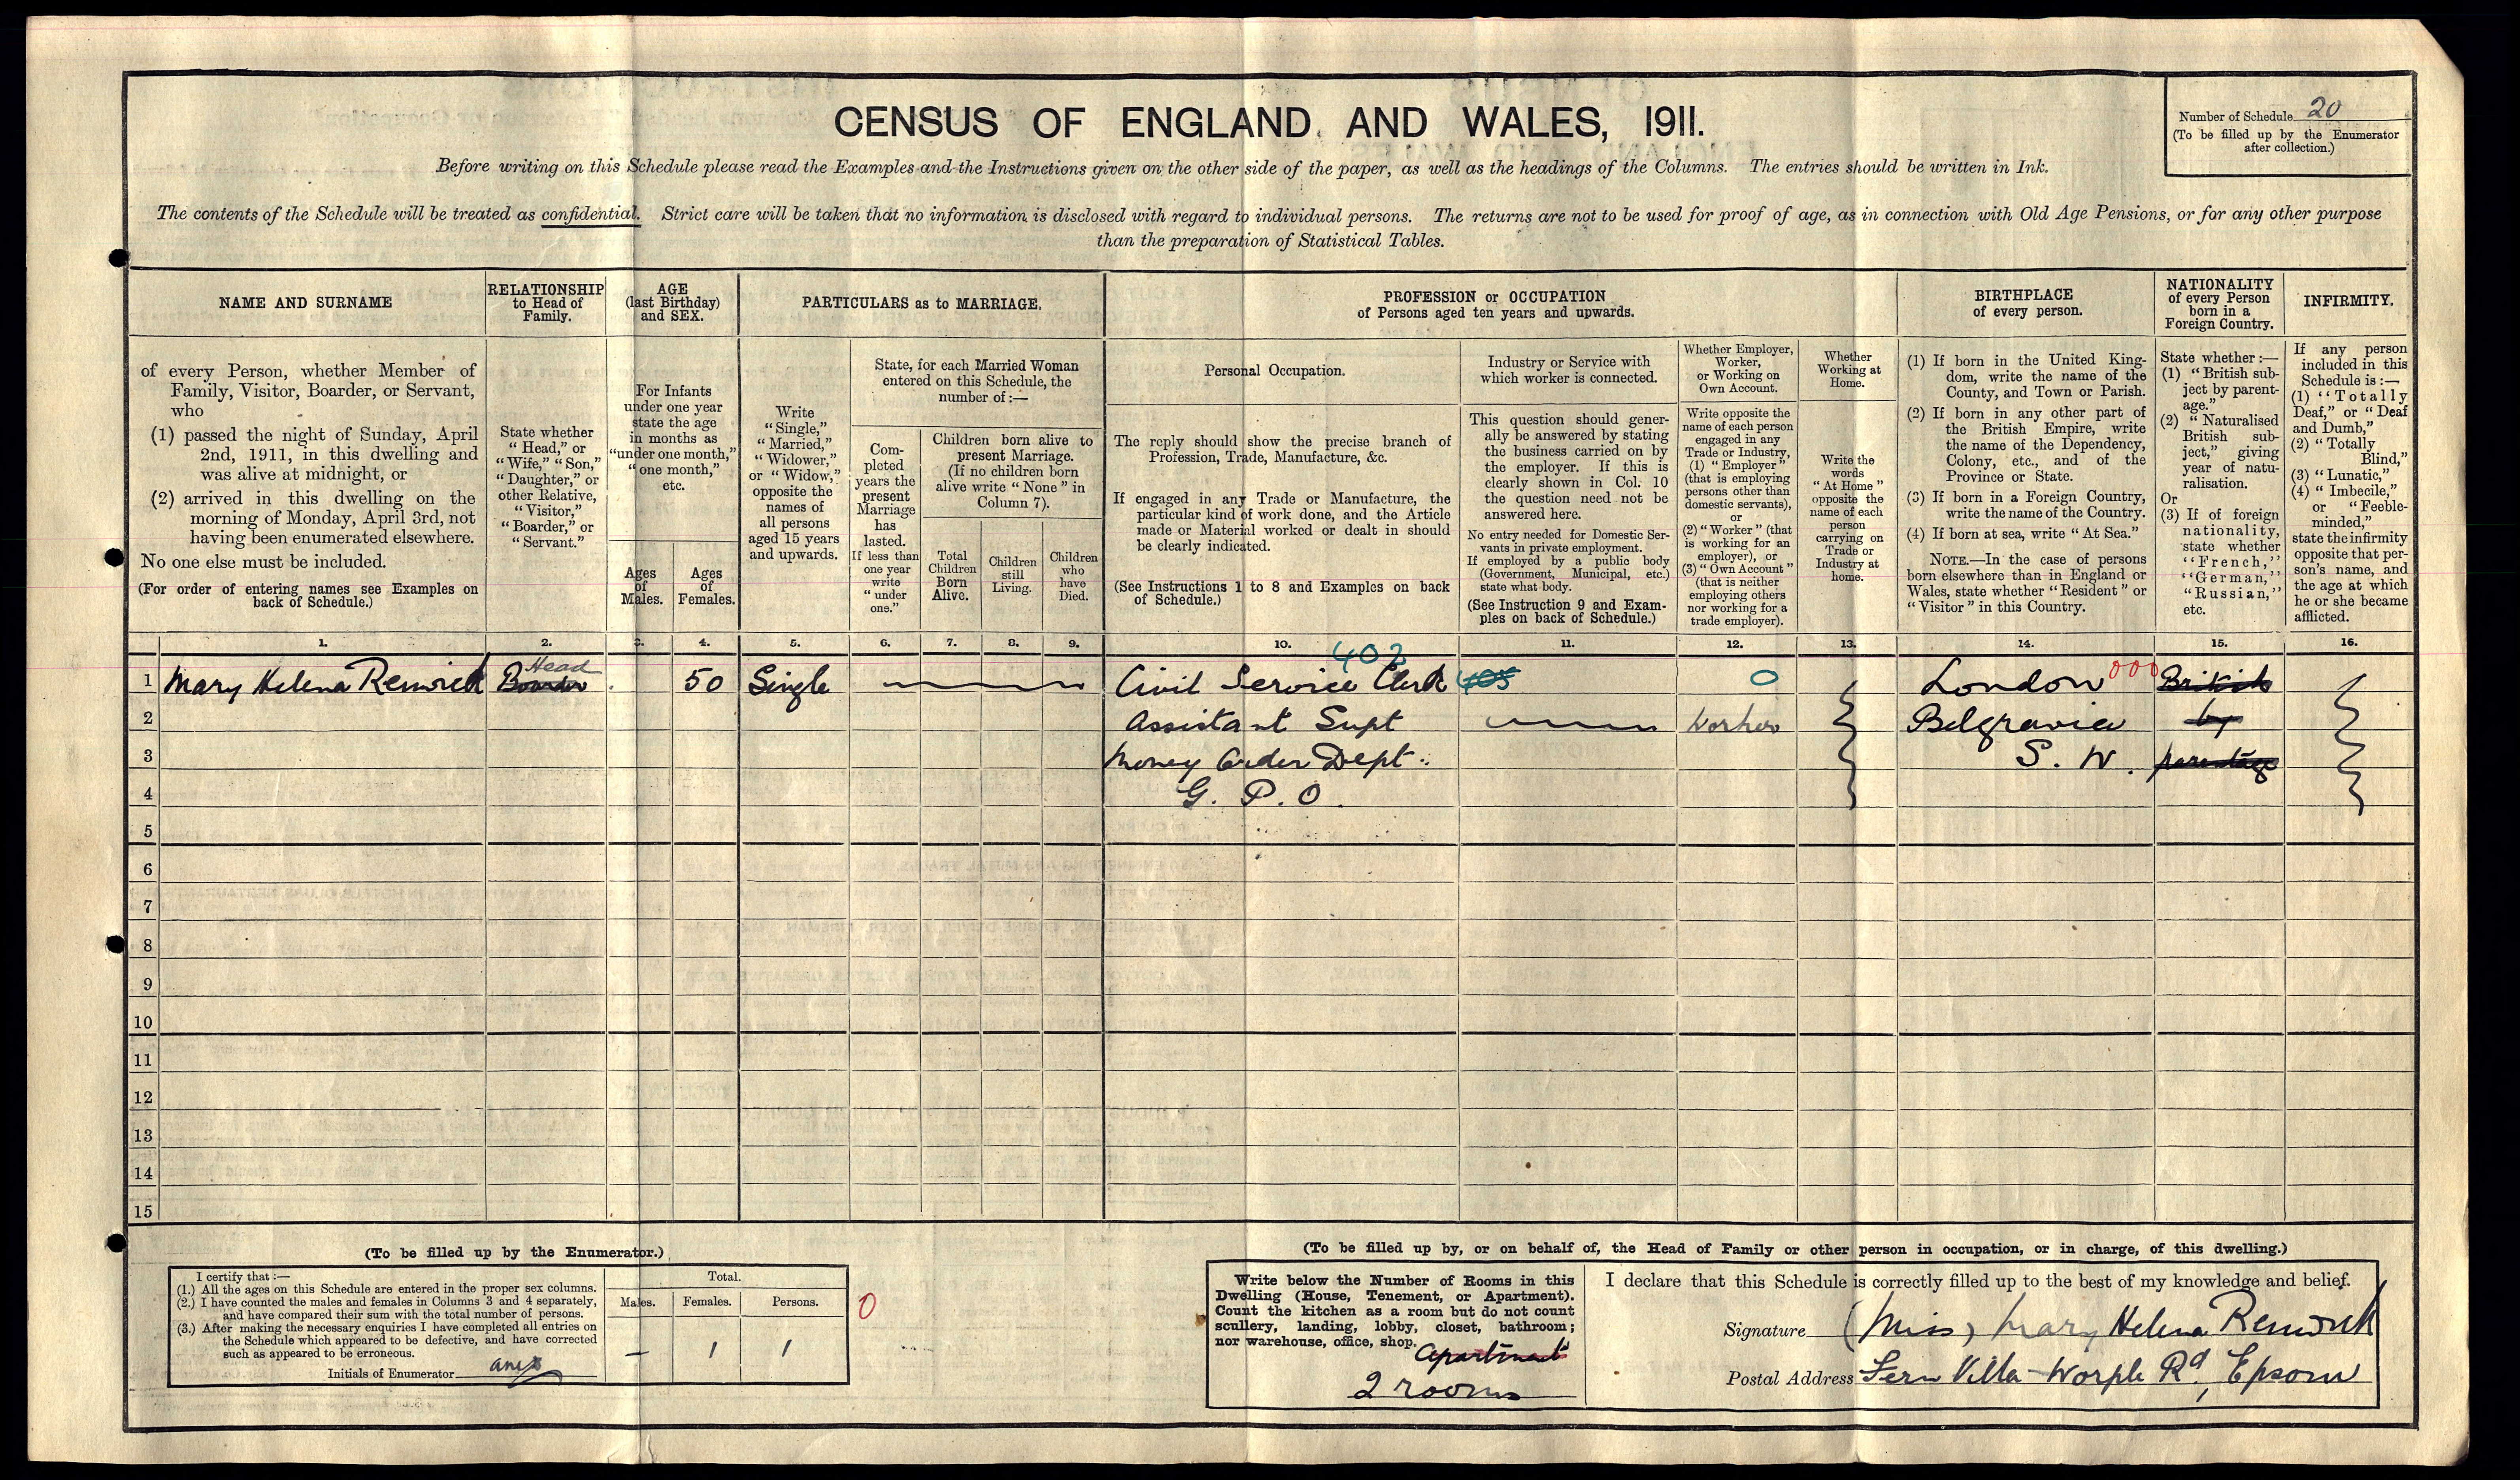 CENSUS OF ENGLAND AND WALES, 1911.
Number of Schedule 20
(To be filled up by the Enumerator
after collection.)
Before writing on this Schedule please read the Examples and the Instructions given on the other side of the paper, as well as the headings of the Columns. The entries should be written in Ink.
The contents of the Schedule will be treated as confidential. Strict care will be taken that no information is disclosed with regard to individual persons. The returns are not to be used for proof of age, as in connection with Old Age Pensions, or for any other purpose
than the preparation of Statistical Tables.
NAME AND SURNAME
of every Person, whether Member of
Family, Visitor, Boarder, or Servant,
who
(1) passed the night of Sunday, April
2nd, 1911, in this dwelling and
was alive at midnight, or
(2) arrived in this dwelling on the
morning of Monday, April 3rd, not
having been enumerated elsewhere.
No one else must be included.
(For order of entering names see Examples on
back of Schedule.)
RELATIONSHIP
to Head of
Family.
State whether
"Head," or
"Wife," "Son,"
"Daughter," or
other Relative,
"Visitor,"
"Boarder," or
"Servant."
AGE
(last Birthday)
and SEX.
For Infants
under one year
state the age
in months as
"under one month,"
"one month,"
etc.
Ages
of
Males.
Ages
of
Females.
PARTICULARS as to MARRIAGE.
Write
"Single,"
"Married,"
"Widower,"
or "Widow,"
opposite the
names of
all persons
aged 15 years
and upwards.
State, for each Married Woman
entered on this Schedule, the
number of :—
Com-
pleted
years the
present
Marriage
has
lasted.
If less than
one year
write
"under
one."
Children born alive to
present Marriage.
(If no children born
alive write "None" in
Column 7).
Total
Children
Born
Alive.
Children
still
Living.
Children
who
have
Died.
PROFESSION or OCCUPATION
of Persons aged ten years and upwards.
Personal Occupation.
The reply should show the precise branch of
Profession, Trade, Manufacture, &c.
If engaged in any Trade or Manufacture, the
particular kind of work done, and the Article
made or Material worked or dealt in should
be clearly indicated.
(See Instructions 1 to 8 and Examples on back
of Schedule.)
Industry or Service with
which worker is connected.
This question should gener-
ally be answered by stating
the business carried on by
the employer. If this is
clearly shown in Col. 10
the question need not be
answered here.
No entry needed for Domestic Ser-
vants in private employment.
If employed by a public body
(Government, Municipal, etc.)
state what body.
(See Instruction 9 and Exam-
ples on back of Schedule.)
Whether Employer,
Worker,
or Working on
Own Account.
Write opposite the
name of each person
engaged in any
Trade or Industry,
(1) "Employer"
(that is employing
persons other than
domestic servants),
or
(2) "Worker" (that
is working for an
employer), or
(3) "Own Account"
(that is neither
employing others
nor working for a
trade employer).
Whether
Working at
Home.
Write the
words
"At Home"
opposite the
name of each
person
carrying on
Trade or
Industry at
home.
BIRTHPLACE
of every person.
(1) If born in the United King-
dom, write the name of the
County, and Town or Parish.
(2) If born in any other part of
the British Empire, write
the name of the Dependency,
Colony, etc., and of the
Province or State.
(3) If born in a Foreign Country,
write the name of the Country.
(4) If born at sea, write "At Sea."
NOTE.—In the case of persons
born elsewhere than in England or
Wales, state whether "Resident" or
"Visitor" in this Country.
NATIONALITY
of every Person
born in a
Foreign Country.
State whether :—
(1) "British sub-
ject by parent-
age."
(2) "Naturalised
British sub-
ject," giving
year of natu-
ralisation.
Or
(3) If of foreign
nationality,
state whether
"French,"
"German,"
"Russian,"
etc.
INFIRMITY.
If any person
included in this
Schedule is :—
(1) "Totally
Deaf," or "Deaf
and Dumb,"
(2) "Totally
Blind,"
(3) "Lunatic,"
(4) "Imbecile,"
or "Feeble-
minded,"
state the infirmity
opposite that per-
son's name, and
the age at which
he or she became
afflicted.
1. 2. 3. 4. 5. 6. 7. 8. 9. 10. 11. 12. 13. 14. 15. 16.
Head 402
1 Mary Helena Renwick Boarder 50 Single Civil Service Clerk 405 0 London 000 British
2 Assistant Supt Worker Belgravia by
3 Money Order Dept. S. W. parentage
4 G. P. O.
5
6
7
8
9
10
11
12
13
14
15
(To be filled up by the Enumerator.)
I certify that :—
(1.) All the ages on this Schedule are entered in the proper sex columns.
(2.) I have counted the males and females in Columns 3 and 4 separately,
and have compared their sum with the total number of persons.
(3.) After making the necessary enquiries I have completed all entries on
the Schedule which appeared to be defective, and have corrected
such as appeared to be erroneous.
Initials of Enumerator
Total.
Males. Females. Persons.
— 1 1
0
(To be filled up by, or on behalf of, the Head of Family or other person in occupation, or in charge, of this dwelling.)
Write below the Number of Rooms in this
Dwelling (House, Tenement, or Apartment).
Count the kitchen as a room but do not count
scullery, landing, lobby, closet, bathroom;
nor warehouse, office, shop.
Apartment
2 rooms
I declare that this Schedule is correctly filled up to the best of my knowledge and belief.
Signature (Miss) Mary Helena Renwick
Postal Address Fern Villa Worple Rd, Epsom